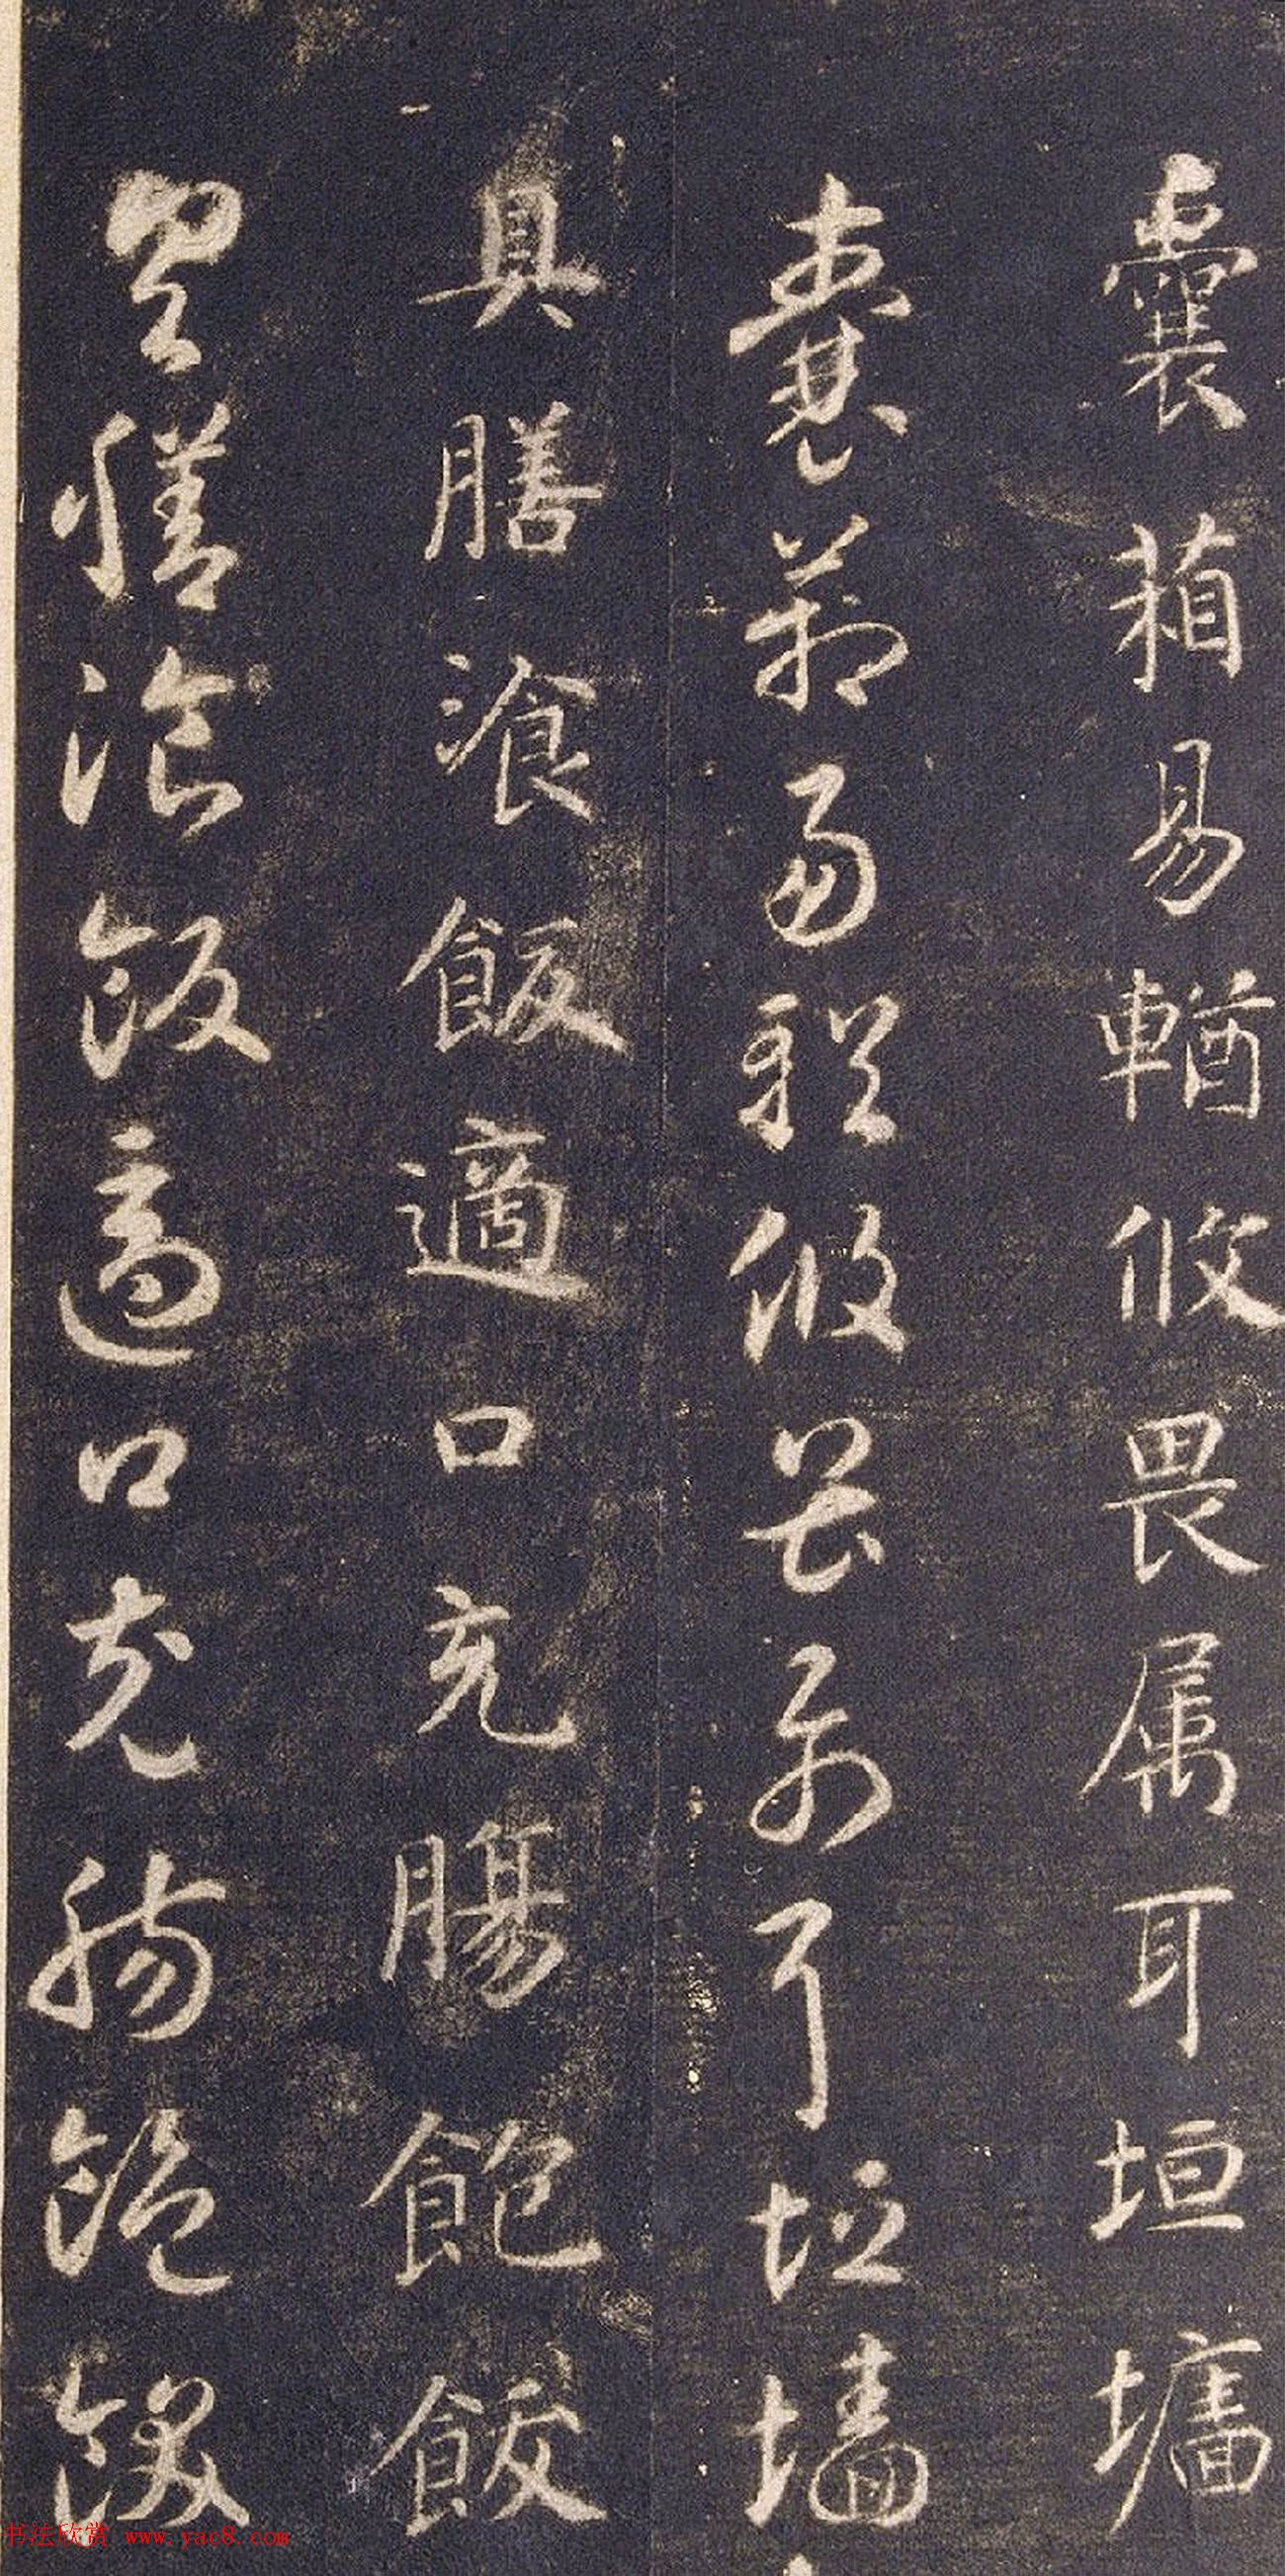 囊箱易輶攸畏属耳垣墻
囊箱易輶攸畏属耳垣墻
具膳飡飯適口充腸飽飫
具膳飡飯適口充腸飽飫
书法欣赏 www.yac8.com